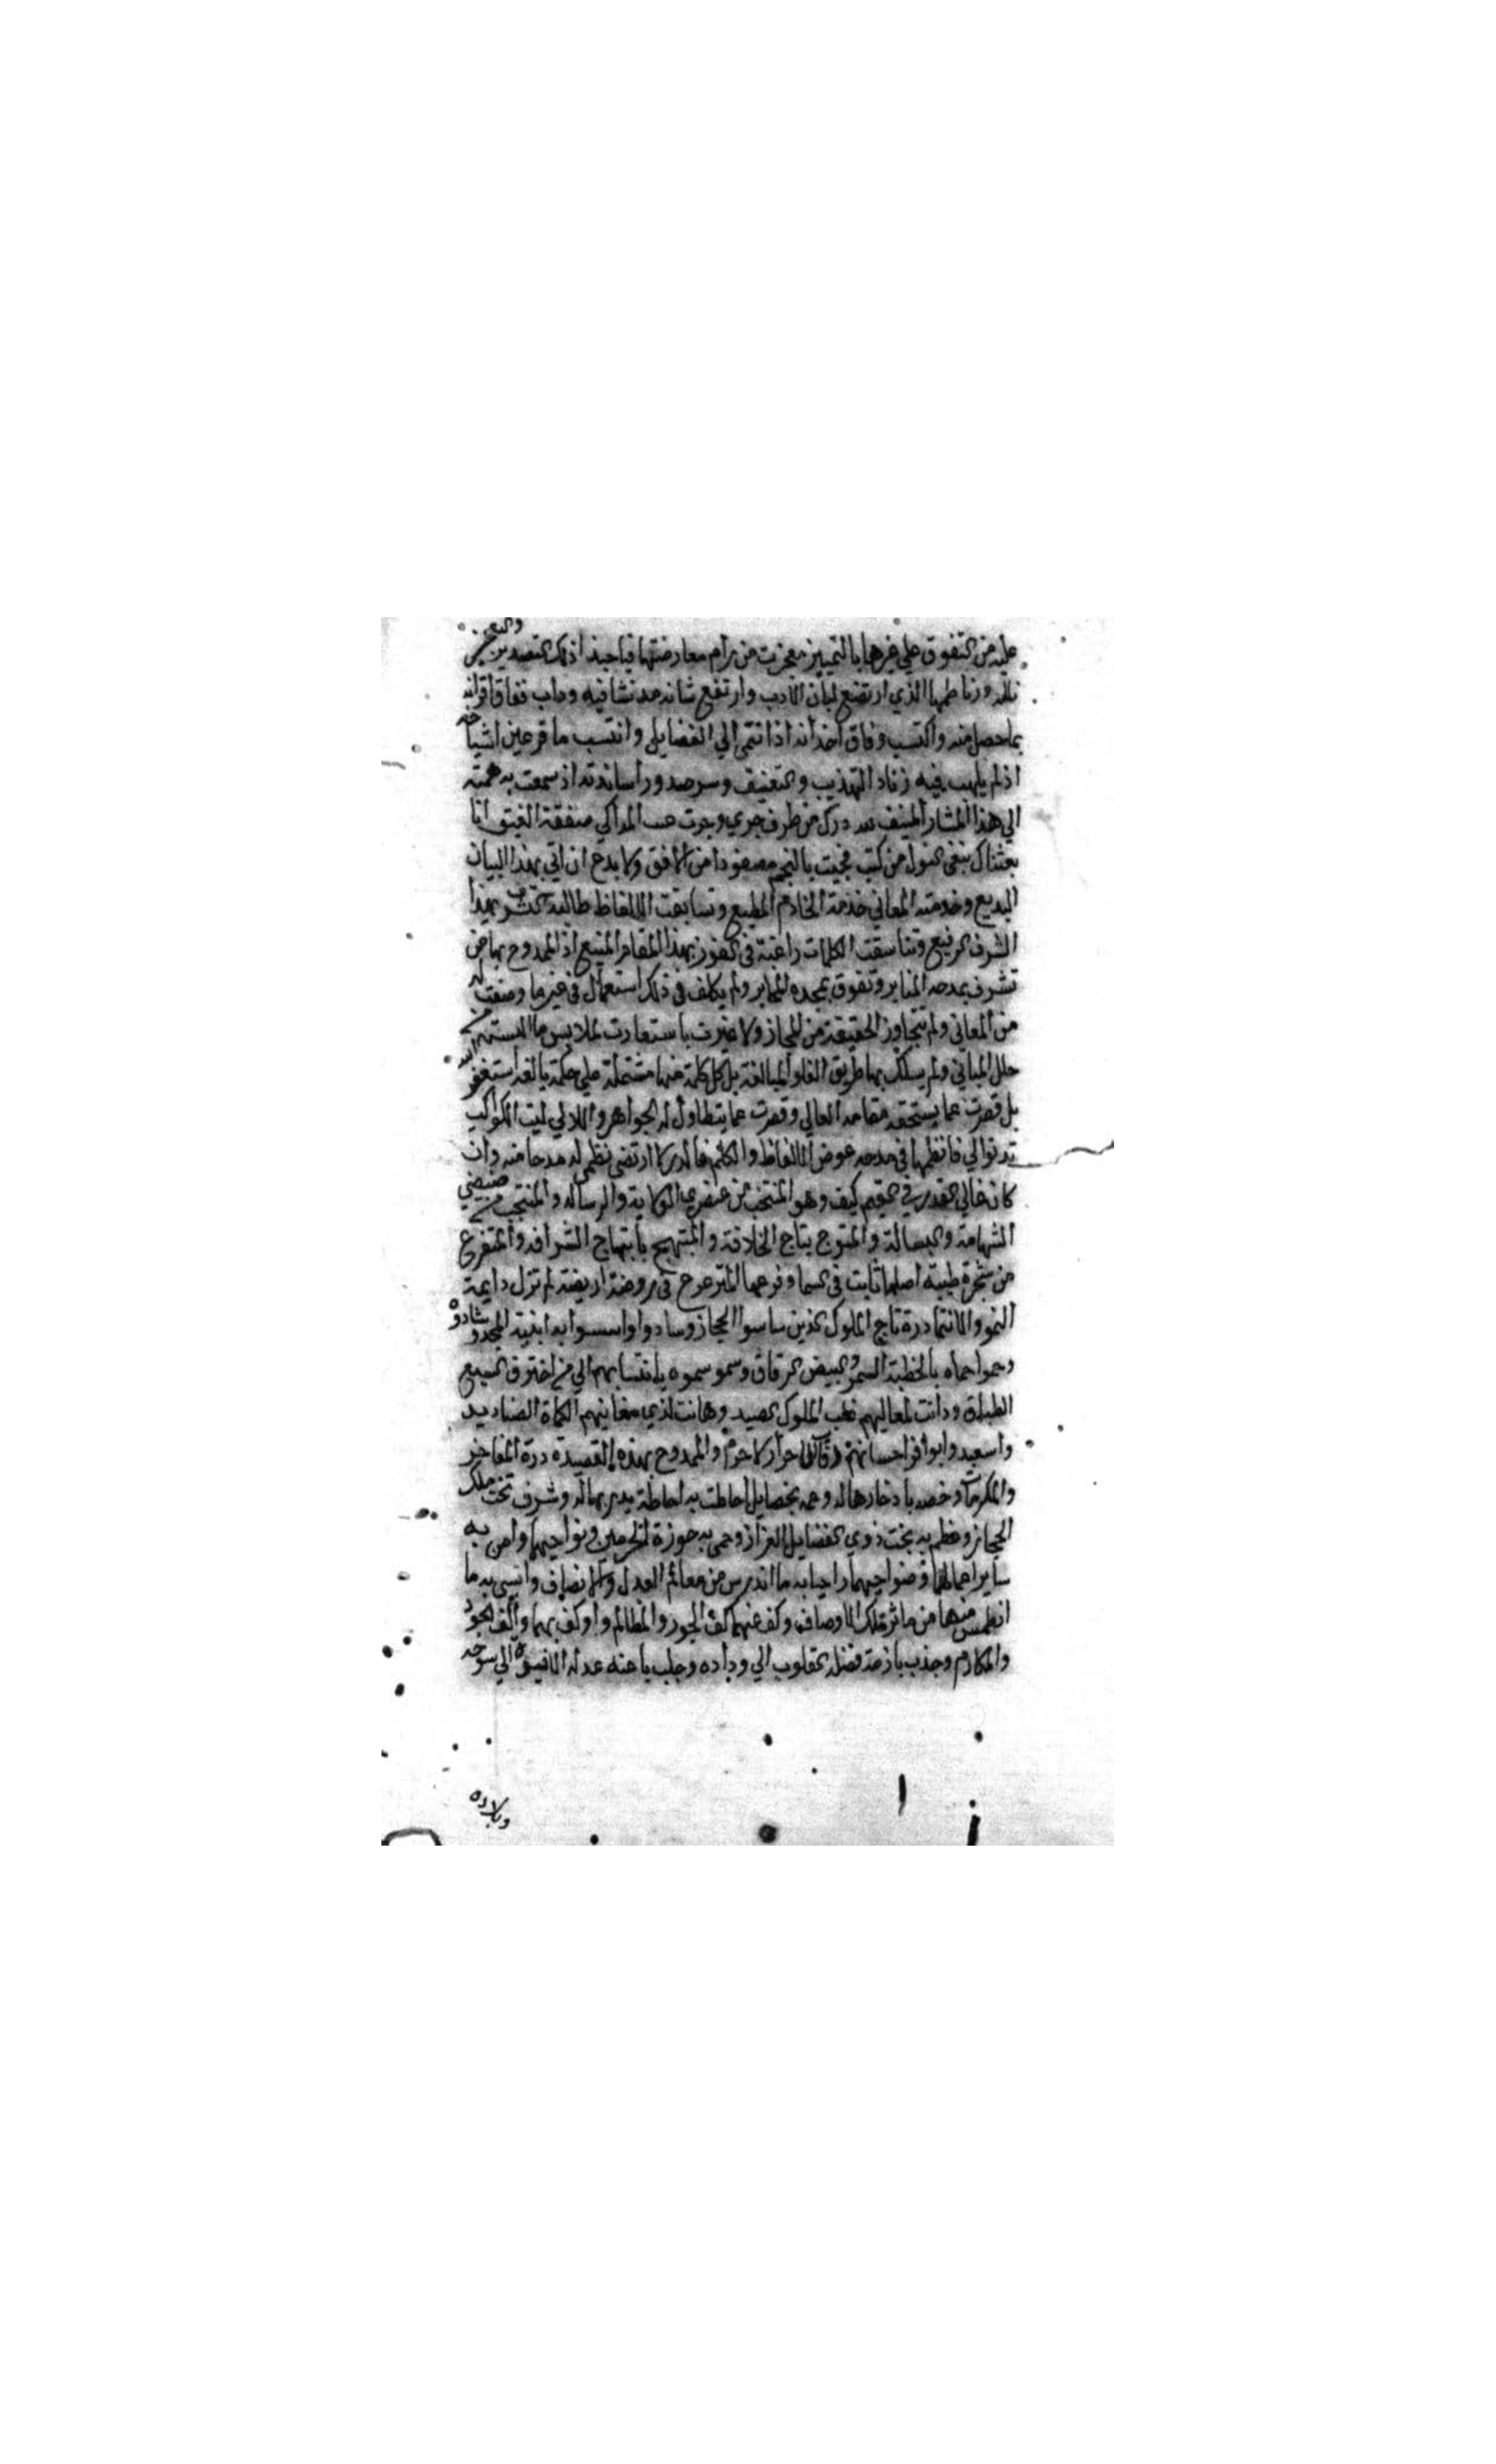 عليه من التفوق علي غيرها بالتمييز معجزت من رام معارضتها فيا حبذا اذلك التصدير والتعجيز
لله وناظمها الذي ارتضع لبان الادب وارتفع شانه مد نشا فيه وداب ففاق اقرانه
بما حصل منه واكتسب وفاق اخدانه اذا انتمي الي الفضايل وانتسب ما قرعين اشياخه
اذ لم يلهب فيه زناد التهذيب والتعنيف وسر صدور اساتذته اذ سمعت به همته
الي هذا المشار المنيف لله درك من طرف جري وجرت المذاكي صفقة انا
بعثناك نبغي من كتب فجيت بالنجم مصفودا من الافق ولا بدع ان اتي بهذا البيان
البديع وخدمته المعاني خدمة الخادم المطيع وتسابقت الالفاظ طالبة التشرف بهذا
الشرف الرفيع وتناسقت الكلمات راغبة في الفوز بهذا المقام المنيع اذ الممدوح بها من
تشرف بمدحه المنابر وتفوق بمجده المحابر ولم يكلف في ذلك استعمال في غير ما وضعت له
من المعاني ولم يتجاوز الحقيقة من المجاز ولا غيرت باستعارت ملابس ما البستهم من
حلل المباني ولم يسلك بها طريق الغلو المبالغة بل كل كلمة منها مشتملة علي حكمة بالغه استغفر الله
بل قصرت عما يستحقه مقامه العالي وقصرت عما يتطاول له الجواهر واللالي ليت الكواكب
تدنوا لي فانظمها في مدحه عوض الالفاظ والكلم فالدر لا ارتضي نظمي له مدحا منه وان
كان غالي القدر في القيم كيف وهو المنتخب من عنصري الولاية والرساله والمنتجب من ضيضي
الشهامة والبسالة والمتوج بتاج الخلافة والمبتهج بابتهاج الشرافه والمتفرع
من شجرة طيبه اصلها ثابت في السما وفرعها المترعرع في روضة اريضة لم تزل دايمة
النمو والانتما درة تاج الملوك الذين ساسوا الحجاز وسادوا واسسوا به ابنية المجد وشادوه
وحموا حماه بالخطية السمر والبيض الرقاق وسمو سموه بانتسابهم الي من اخترق السبع
الطباق ودانت لمعاليهم غلب الملوك الصيد وهانت لذي مغانيهم الكماة الصناديد
واسعبدوا بوافر احسانهم احرار والممدوح بهذه القصيدة درة المفاخر
والمكرمات وخصه بادخارها له وعمه بخصايل احاطت به احاطة بدر بهاله وشرف تخت ملك
الحجاز وعظم به بخت ذوي الفضايل العزاز وحمي به حوزة الحرمين ونواحيها وامن به
ساير اعمالها وضواحيهما واحيا به ما اندرس من معالم العدل والانصاف وانسي به ما
انطمس منها من ماثر تلك الاوصاف وكف عنهما كف الجور والمظالم واوكف بهما وكف الجود
والمكارم وجذب بازمة فضله القلوب الي وداده وجلب باعنه عدله الي سوحه
وبلاده